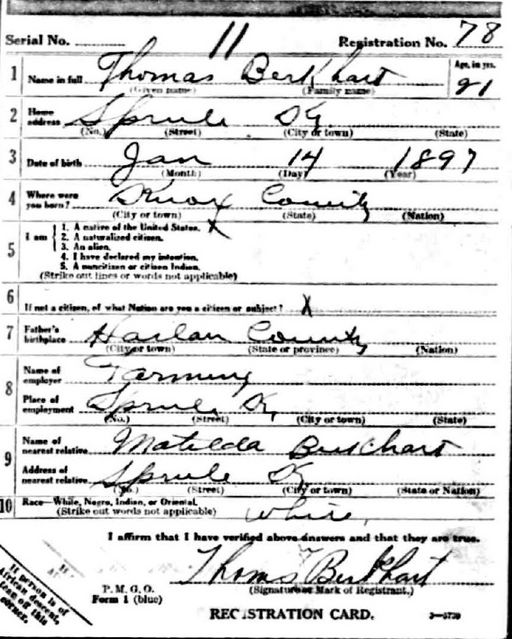 Serial No. 11 Registration No. 78
1 Name in full Thomas Berkhart Age, in yrs. 21
(Given name) (Family name)
2 Home address Sprule Ky.
(No.) (Street) (City or town) (State)
3 Date of birth Jan 14 1897
(Month) (Day) (Year)
4 Where were you born? Knox County
(City or town) (State) (Nation)
5 I am
1. A native of the United States. X
2. A naturalized citizen.
3. An alien.
4. I have declared my intention.
5. A noncitizen or citizen Indian.
(Strike out lines or words not applicable)
6 If not a citizen, of what Nation are you a citizen or subject? X
7 Father's birthplace Harlan County
(City or town) (State or province) (Nation)
8 Name of employer Farming
Place of employment Sprule Ky
(No.) (Street) (City or town) (State)
9 Name of nearest relative Matilda Burkhart
Address of nearest relative Sprule Ky
(No.) (Street) (City or town) (State or Nation)
10 Race—White, Negro, Indian, or Oriental.
(Strike out words not applicable) White,
I affirm that I have verified above answers and that they are true.
Thoms Burkhart
P. M. G. O. (Signature or Mark of Registrant.)
Form 1 (blue)
REGISTRATION CARD. 3—5739
If person is of
African descent,
tear off this
corner.